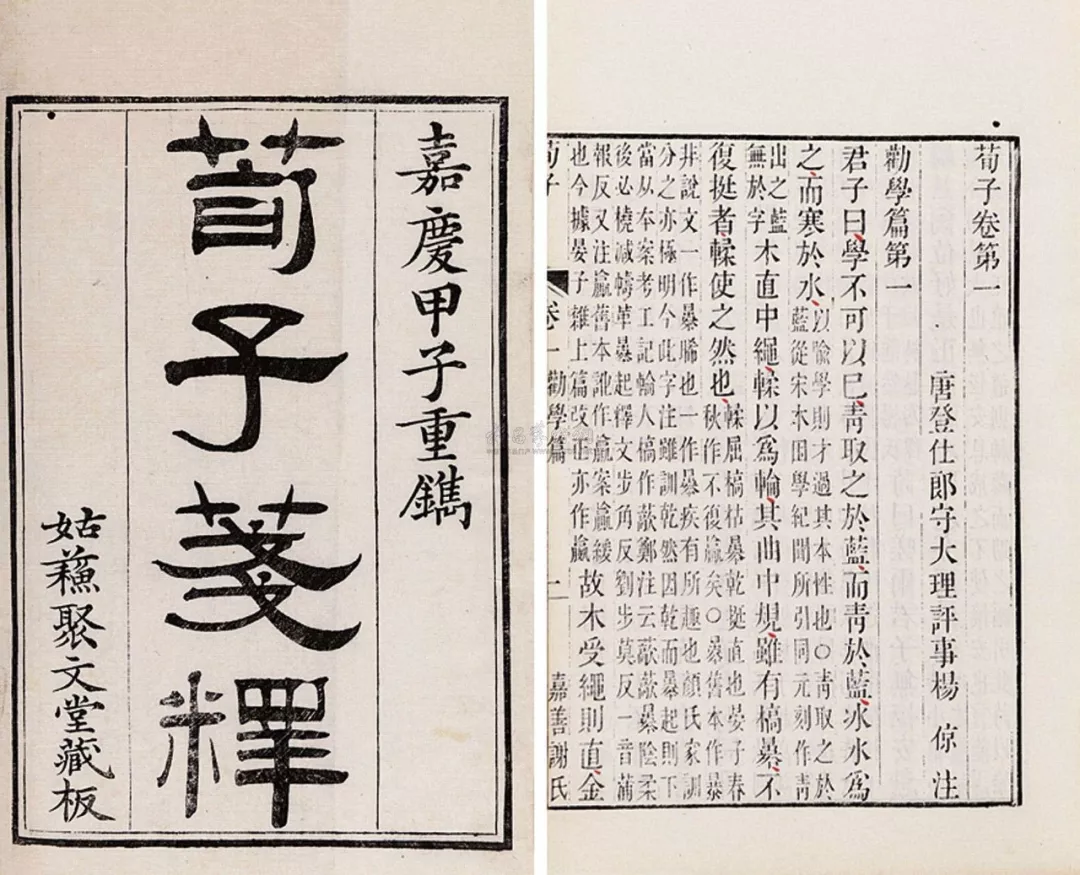 嘉慶甲子重鐫
荀子箋釋
姑蘓聚文堂藏板
荀子卷第一
唐登仕郎守大理評事楊倞注
勸學篇第一
君子曰學不可以已青取之於藍而青於藍冰水爲
之而寒於水以喻學則才過其本性也○青取之於藍從宋本困學紀聞所引同元刻作青
出之藍無於字木直中繩輮以爲輪其曲中規雖有槁暴不
復挺者輮使之然也輮屈槁枯暴乾挺直也晏子春秋作不復贏矣○暴舊本作㬥
非說文一作㬥晞也一作暴疾有所趣也顏氏家訓分之亦極明今此字注雖訓乾然因乾而暴起則下
當从本案考工記輪人槁作藃鄭注云藃藃暴陰柔後必橈减幬革暴起釋文步角反劉步莫反一音蒲
報反又注贏舊本訛作羸案贏緩也今據晏子雜上篇改正亦作嬴故木受繩則直金
荀子 卷一 勸學篇 一 嘉善謝氏